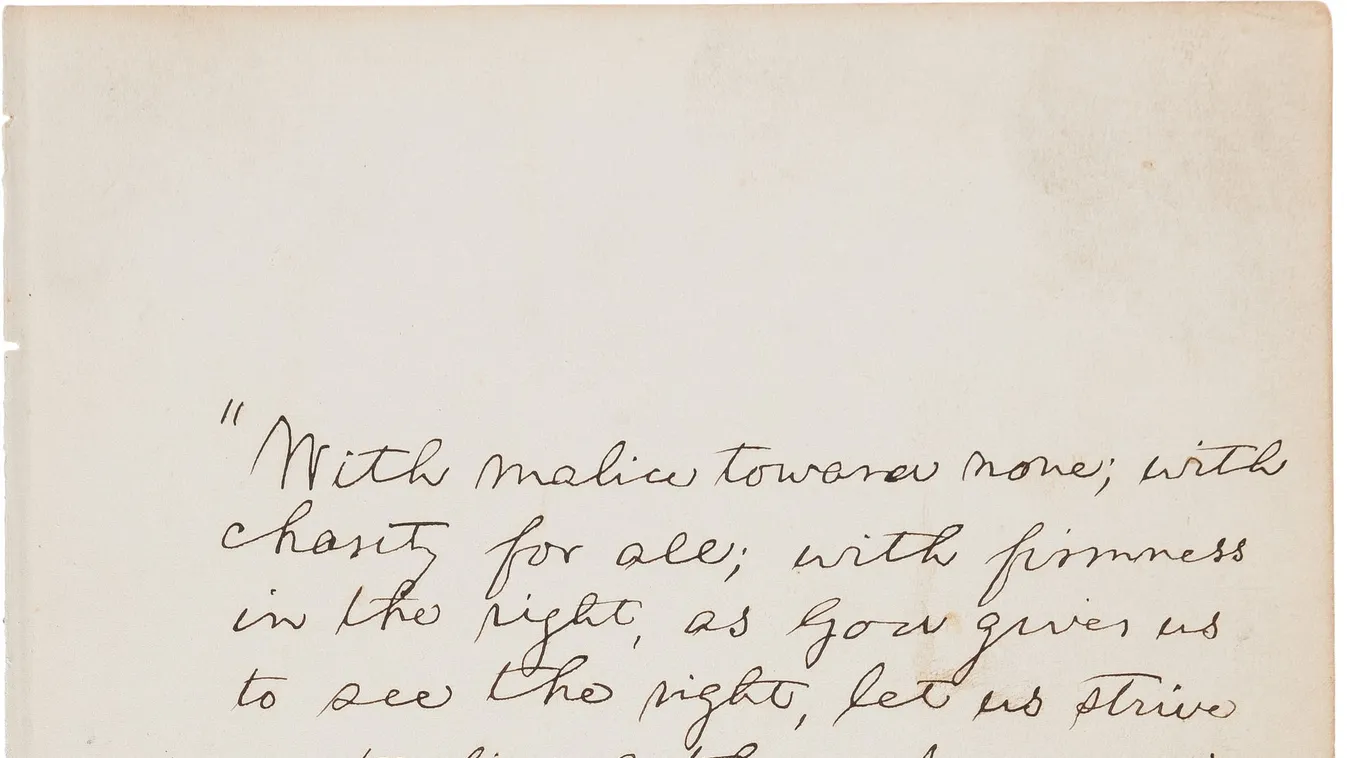 "With malice toward none; with
charity for all; with firmness
in the right, as God gives us
to see the right, let us strive